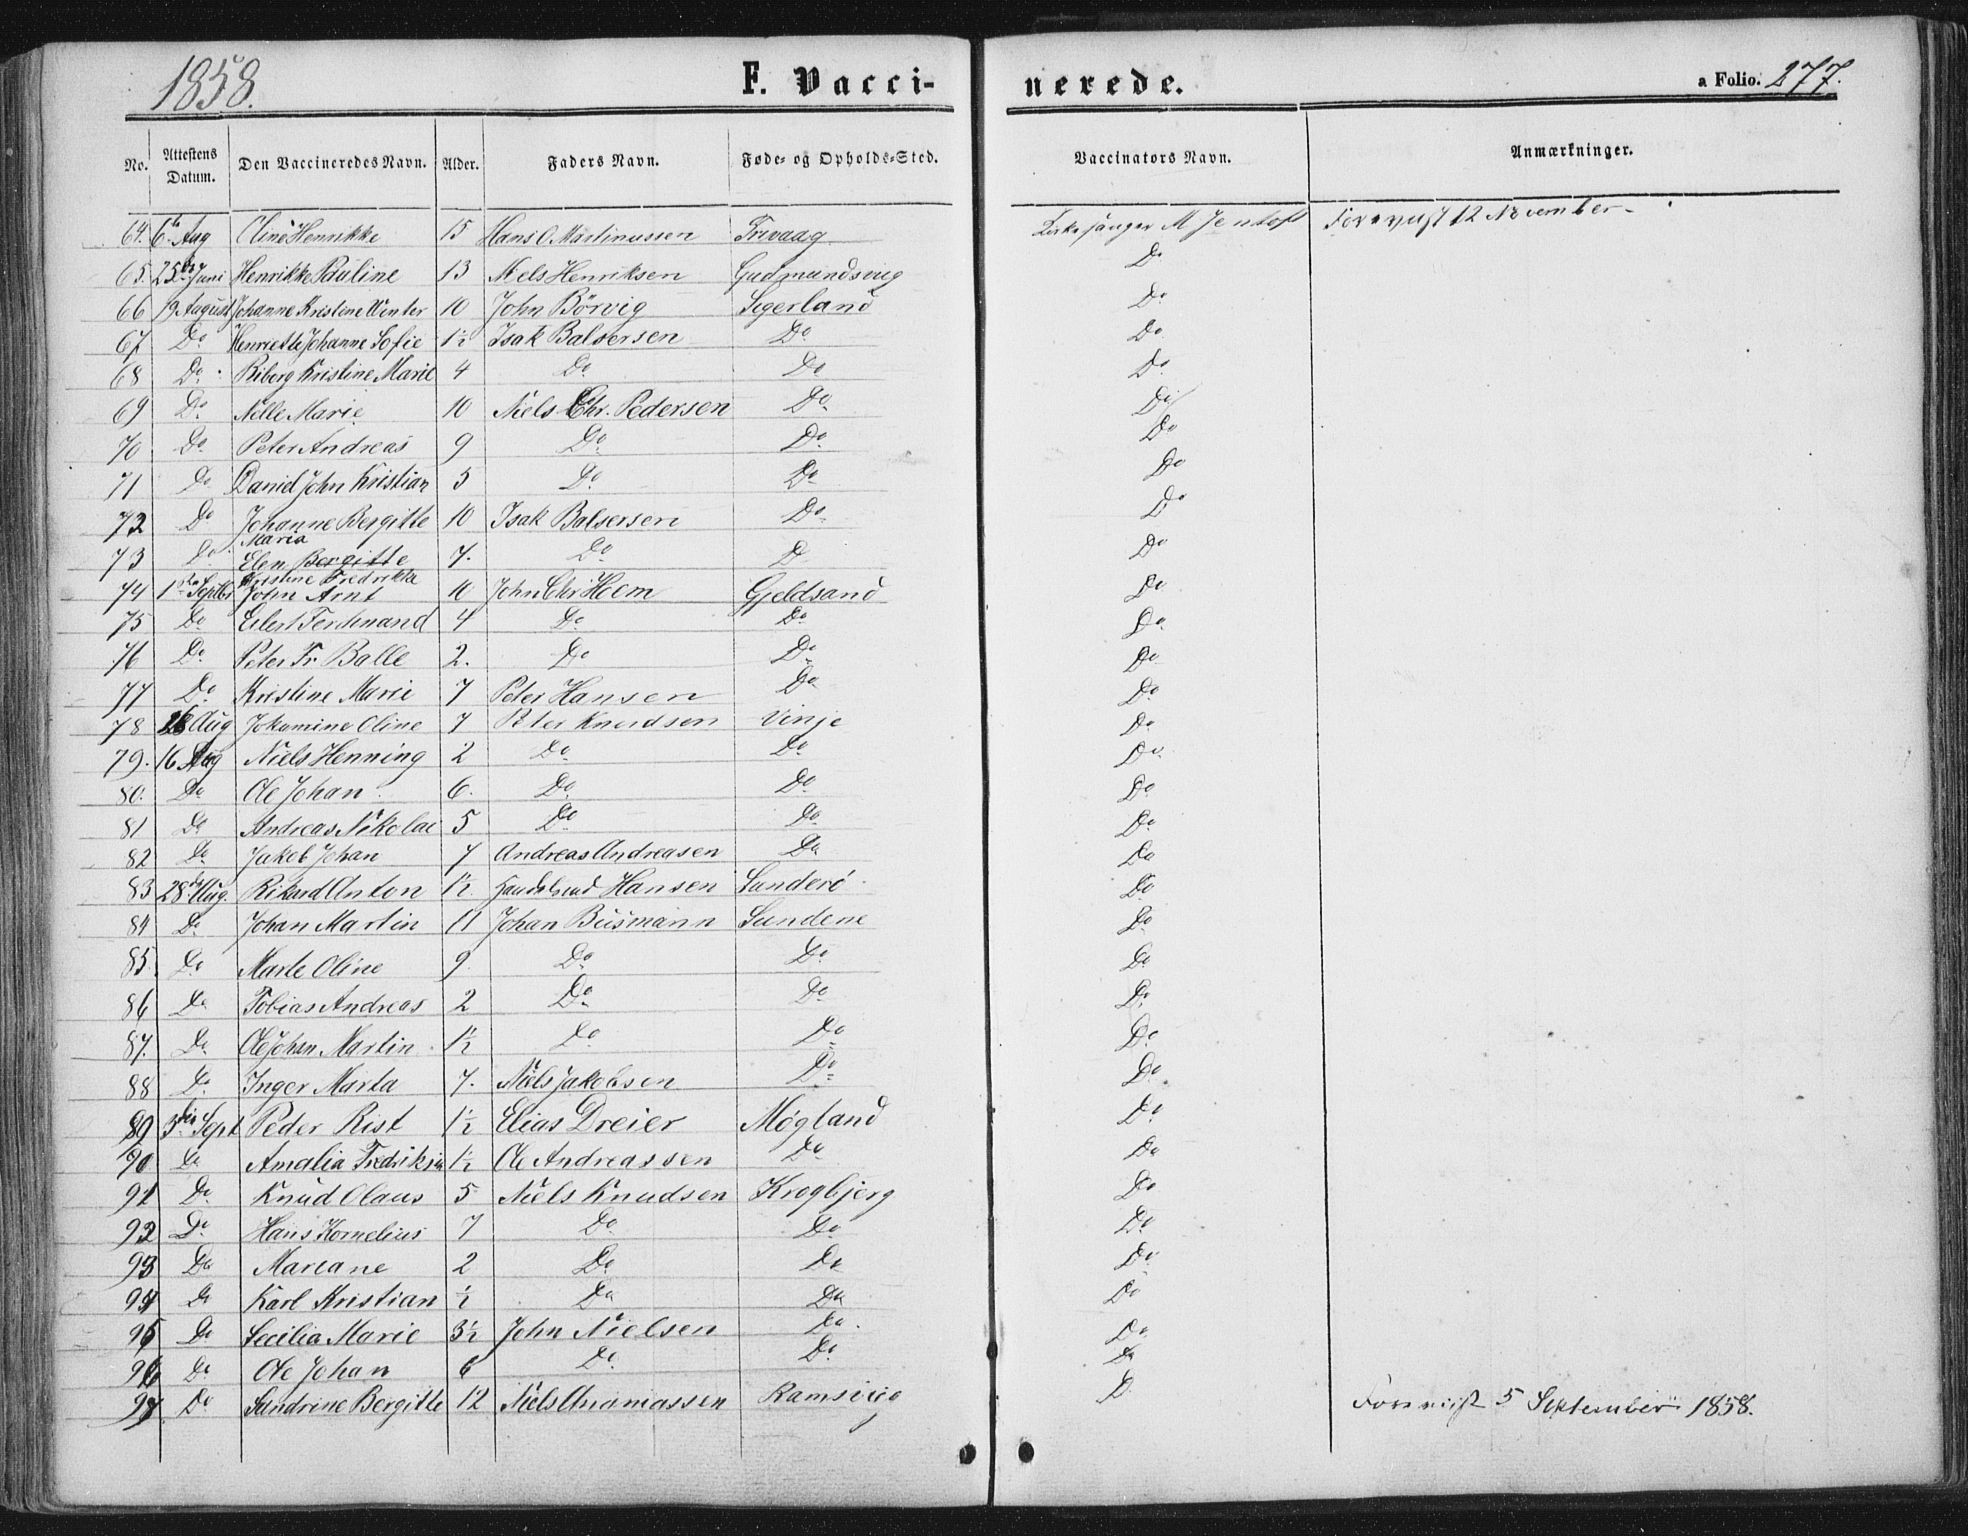 1858.
F. Vacci-
nerede.
a Folio. 277.
No. Attestens Datum. Den Vaccineredes Navn. Alder. Faders Navn. Føde- og Opholds-Sted. Vaccinators Navn. Anmærkninger.
64. 6te Aug Oline Henrikke 15 Hans O. Martinussen Trevaag M Jentoft Forevist 12 November
65. 25de Juni Henrikke Pauline 13 Niels Henriksen Gudmundsvig Do
66 19 August Johanne Kristine Winter 10 John Börvig Segerland Do
67 Do Henriette Johanne Sofie 1½ Isak Balsersen Do Do
68 Do Riberg Kristine Marie 4 Do Do Do
69 Do Nelle Marie 10 Niels Chr. Pedersen Do Do
70 Do Peter Andreas 9 Do Do Do
71 Do Daniel John Kristian 3 Do Do Do
72 Do Johanne Bergitte 10 Isak Balsersen Do Do
Maria
73 Do Elen Bergitte 7. Do D Do
Kristine Fredrikke
74 1ste Septbr John Arnt 10 John Chr Hoem Gjeldsand Do
75 Do Eilert Ferdinand 4 Do Do Do
76 Do Peter Fr. Balle 2. Do Do Do
77 Do Kristine Marie 7 Peter Hansen Do Do
78 Aug Johamine Oline 7 Peter Knudsen Vinje Do
79. 16 Aug Niels Henning 2 Do Do Do
80. Do Ole Johan 6. Do Do Do
81 Do Andreas Nikolai 5 Do Do Do
82 Do Jakob Johan 7 Andreas Andreasen Do Do
83 28de Aug. Rikard Anton 1½ Hansen Sunderö Do
84 Do Johan Martin 11 Johan Busmann Sundene Do
85. Do Marte Oline 9 Do Do Do
86 Do Tobias Andreas 2 Do Do Do
87. Do Ole Johan Martin 1½ Do Do Do
88 Do Inger Marta 7. Niels Jakobsen Do Do
89 3die Sept Peder Rist 1½ Elias Dreier Mögland Do
90 Do Amalia Fredriksa 1½ Ole Andreassen Do Do
91 Do Knud Olaus 5 Niels Knudsen Krogbjerg Do
92 Do Hans Kornelius 7 Do Do Do
93 Do Mareane 2 Do Do Do
94 Do Karl Kristian ½ Do Do Do
95 Do Secilia Marie 3½ John Nielsen Do Do
96 Do Ole Johan 6 Do Do Do
97 Do Sandrine Bergitte 12 Niels Ananiassen Ramsvig D. Forevist 5 September 1858.